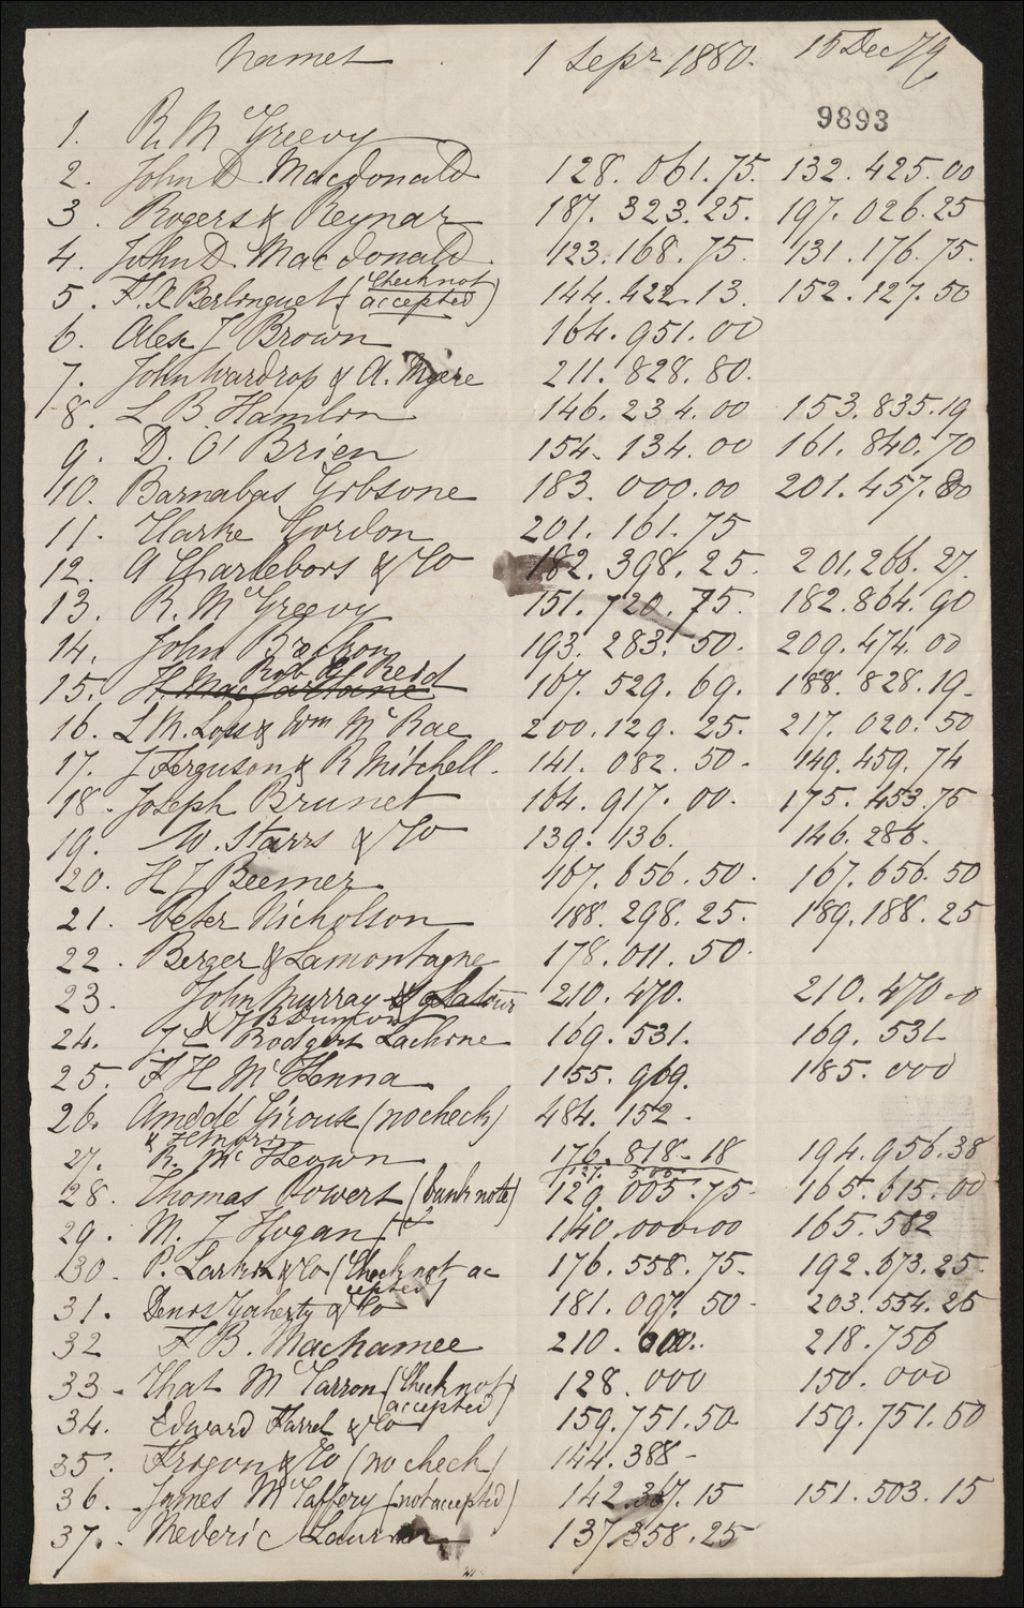 Names 1 Sepr 1880. 15 Dec 79
9893
1. R. McGreevy
2. John D. Macdonald 128.061.75. 132.425.00
3. Rogers & Reynar 187.323.25. 197.026.25
4. John D. Macdonald. 123.168.75. 131.176.75.
5. F. X Berlinguet (Check not accepted) 144.422.13. 152.127.50
6. Alex J Brown 164.951.00
7. John Wardrop & A. 211.828.80.
8. L B. Hamlin 146.234.00 153.835.19
9. D. O'Brien 154.134.00 161.840.70
10. Barnabas Gibsone 183.000.00 201.457.80
11. Clarke Gordon 201.161.75
12. A Charlebois & Co 182.398.25. 201.266.27.
13. R. McGreevy 151.720.75. 182.864.90
14. John 193.283.50. 209.474.00
Rob G Reid
15. H. MacFarlane 167.529.69. 188.828.19.
16. L. M. Loss & Wm McRae 200.129.25. 217.020.50
17. J Ferguson & R Mitchell. 141.082.50. 149.459.74
18. Joseph Brunet 164.917.00. 175.453.75
19. W. Starrs & Co 139.136. 146.286.
20. H J Beemer 167.656.50. 167.656.50
21. Peter Nicholson 188.298.25. 189.188.25
22. Berger & Lamontagne 178.011.50.
23. John Murray & 210.470. 210.470.
24. J. C Rodgers Lachine 169.531. 169.531
25. F H McKenna 155.969. 185.000
26. Amédé Giroux (no check) 484.152.
27. R. McKeown 176.818.18 194.956.38
28. Thomas Powers (bank note) 129.005.75. 165.615.00
29. M. J Hogan 140.000.00 165.582
30. P. Larkin & Co (Check not accepted) 176.558.75. 192.673.25
31. Denis & Co 181.097.50. 203.554.25
32 F B. Macnamee 210. 218.756
33. Chas McCarron (Check not accepted) 128.000 150.000
34. Edward Farrel & Co 159.751.50. 159.751.50
35. Frigon & Co (no check) 144.388
36. James McCaffery (not accepted) 142.367.15 151.503.15
37. Mederic 137.358.25